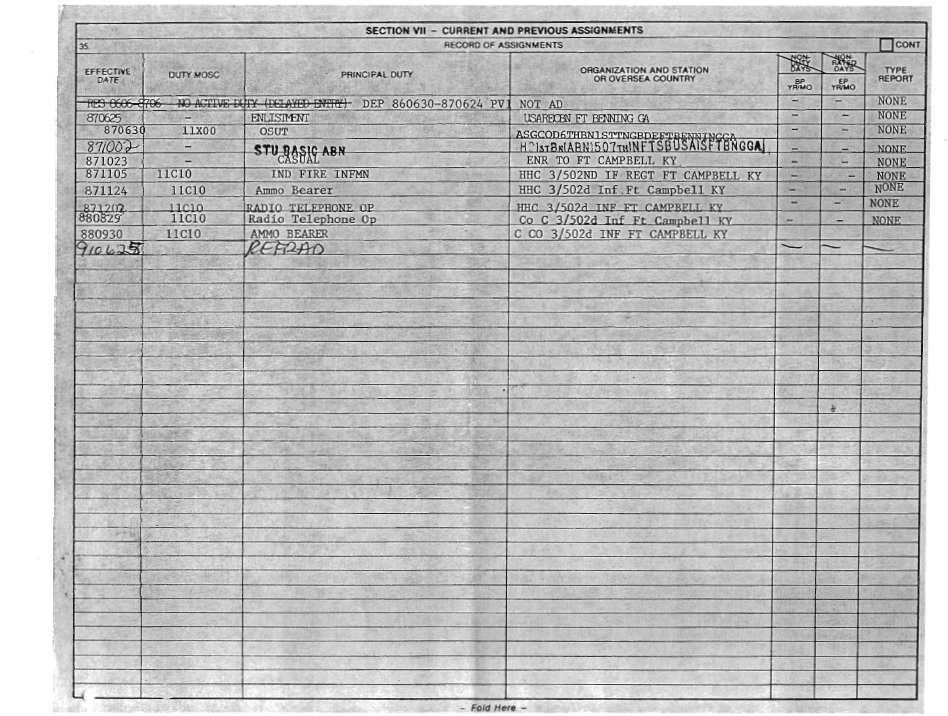 SECTION VII – CURRENT AND PREVIOUS ASSIGNMENTS
35. RECORD OF ASSIGNMENTS CONT
EFFECTIVE DATE DUTY MOSC PRINCIPAL DUTY ORGANIZATION AND STATION OR OVERSEA COUNTRY NON-DUTY DAYS BP YR/MO NON-RATED DAYS EP YR/MO TYPE REPORT
RES 8606-8706 NO ACTIVE DUTY (DELAYED ENTRY) DEP 860630-870624 PV1 NOT AD – – NONE
870625 – ENLISTMENT USARECBN FT BENNING GA – – NONE
870630 11X00 OSUT ASGCOD6THBN1STTNGBDEFTBENNINGGA – – NONE
871002 – STU BASIC ABN 1STBN(ABN)507THINFTSBUSAISFTBNGGA – – NONE
871023 – CASUAL ENR TO FT CAMPBELL KY – – NONE
871105 11C10 IND FIRE INFMN HHC 3/502ND IF REGT FT CAMPBELL KY – – NONE
871124 11C10 Ammo Bearer HHC 3/502d Inf.Ft Campbell KY – – NONE
871202 11C10 RADIO TELEPHONE OP HHC 3/502d INF FT CAMPBELL KY – – NONE
880829 11C10 Radio Telephone Op Co C 3/502d Inf Ft Campbell KY – – NONE
880930 11C10 AMMO BEARER C CO 3/502d INF FT CAMPBELL KY
910625 REFRAD — — —
– Fold Here –